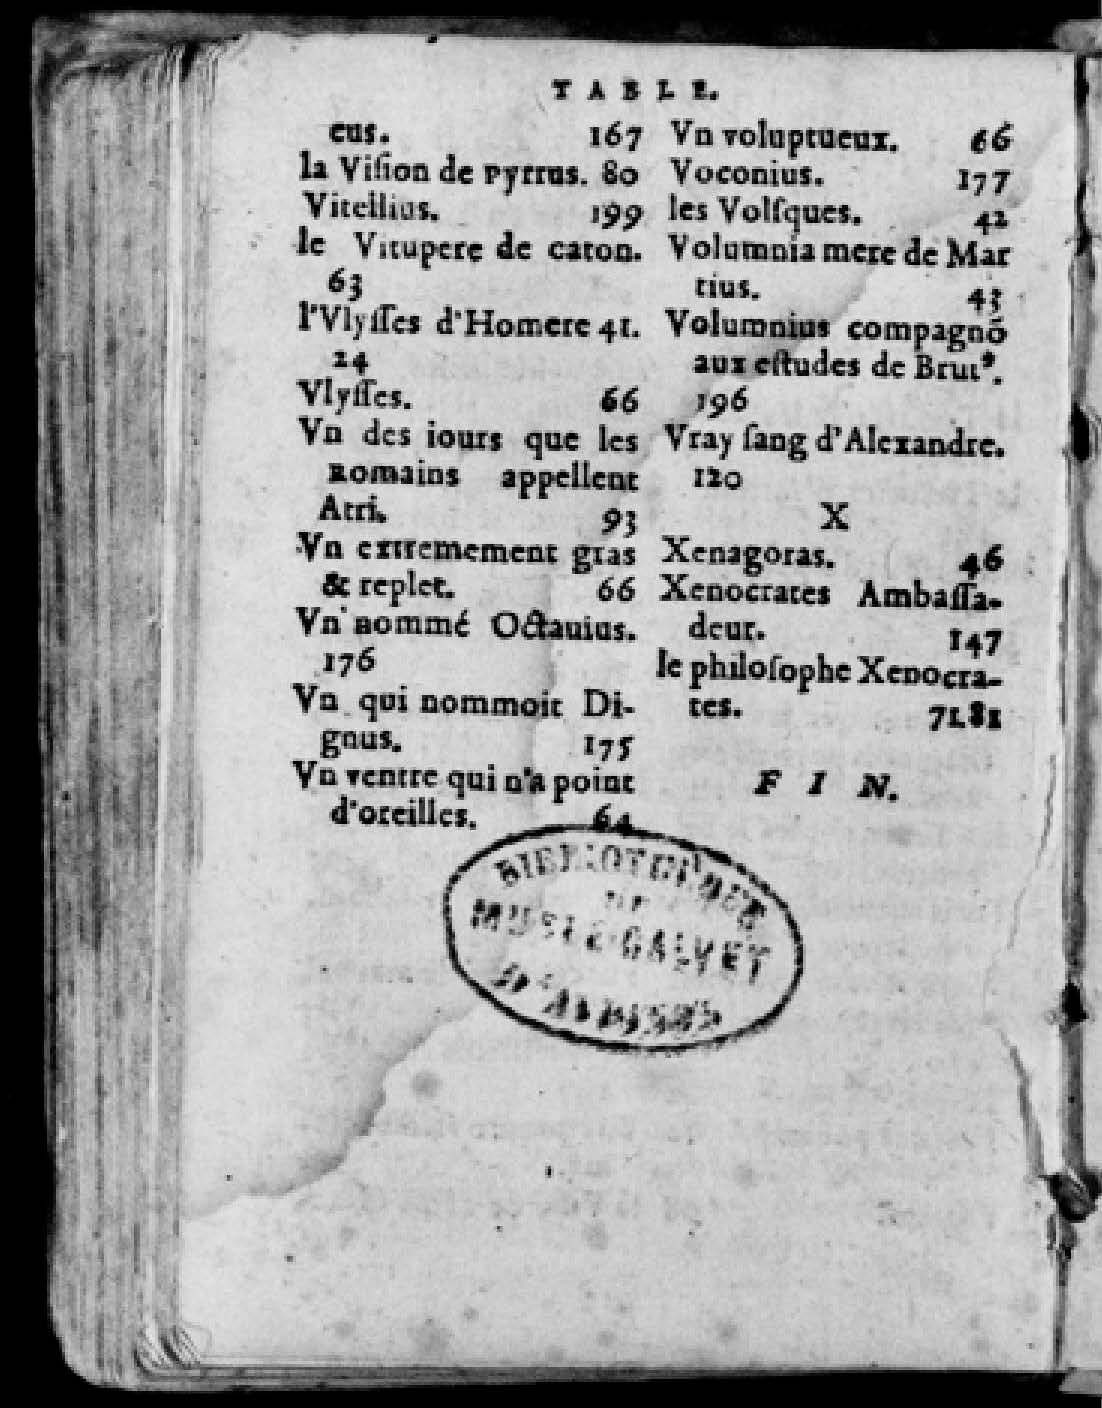 TABLE.
cus. 167
la Viſion de pyrrus. 80
Vitellius. 199
le Vitupere de caton.
63
l'Vlyſſes d'Homere 41.
24
Vlyſſes. 66
Vn des iours que les
Romains appellent
Atri. 93
Vn extremement gras
& replet. 66
Vn nommé Octauius.
176
Vn qui nommoit Di-
gnus. 175
Vn ventre qui n'a point
d'oreilles. 64
Vn voluptueux. 66
Voconius. 177
les Volſques. 42
Volumnia mere de Mar
tius. 43
Volumnius compagnõ
aux eſtudes de Brutꝰ.
196
Vray ſang d'Alexandre.
120
X
Xenagoras. 46
Xenocrates Ambaſſa-
deur. 147
le philoſophe Xenocra-
tes. 71.81
FIN.
BIBLIOTHÈQUE
MUSÉE CALVET
D'AVIGNON